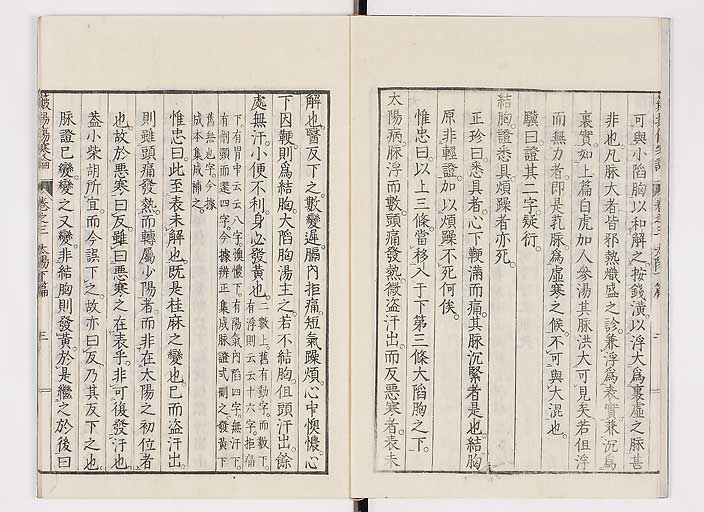 可與小陷胸以和解之按錢潢以浮大爲裏虛之脉甚
非也凡脉大者皆邪熱熾盛之診兼浮爲表實兼沉爲
裏實如上篇白虎加人參湯其脉洪大可見矣若但浮
而無力者即是芤脉爲虛寒之候不可與大混也
驥曰證其二字疑衍
結胸證悉具煩躁者亦死
正珍曰悉具者心下鞕滿而痛其脉沉緊者是也結胸
原非輕證加以煩躁不死何俟
惟忠曰以上三條當移入于下第三條大陷胸之下
太陽病脉浮而動數頭痛發熱微盜汗出而反惡寒者表未
解也醫反下之數變遲膈內拒痛短氣躁煩心中懊憹心
下因鞕則爲結胸大陷胸湯主之若不結胸但頭汗出餘
處無汗小便不利身必發黃也
二數上舊有動字而數下
有浮則云云十六字拒痛
下有胃中云云八字懊憹下有陽氣內陷四字無汗下
有劑頸而還四字今據辨正集成脉證式刪之發黃下
舊無也字今據
成本集成補之
惟忠曰此至表未解也既是桂麻之變也已而盜汗出
則雖頭痛發熱而轉屬少陽者而非在太陽之初位者
也故於惡寒曰反雖曰惡寒之在表乎非可復發汗也
蓋小柴胡所宜而今誤下之故亦曰反乃其反下之也
脉證已變變之又變非結胸則發黃於是繼之於後曰
卷之三
太陽下篇
三